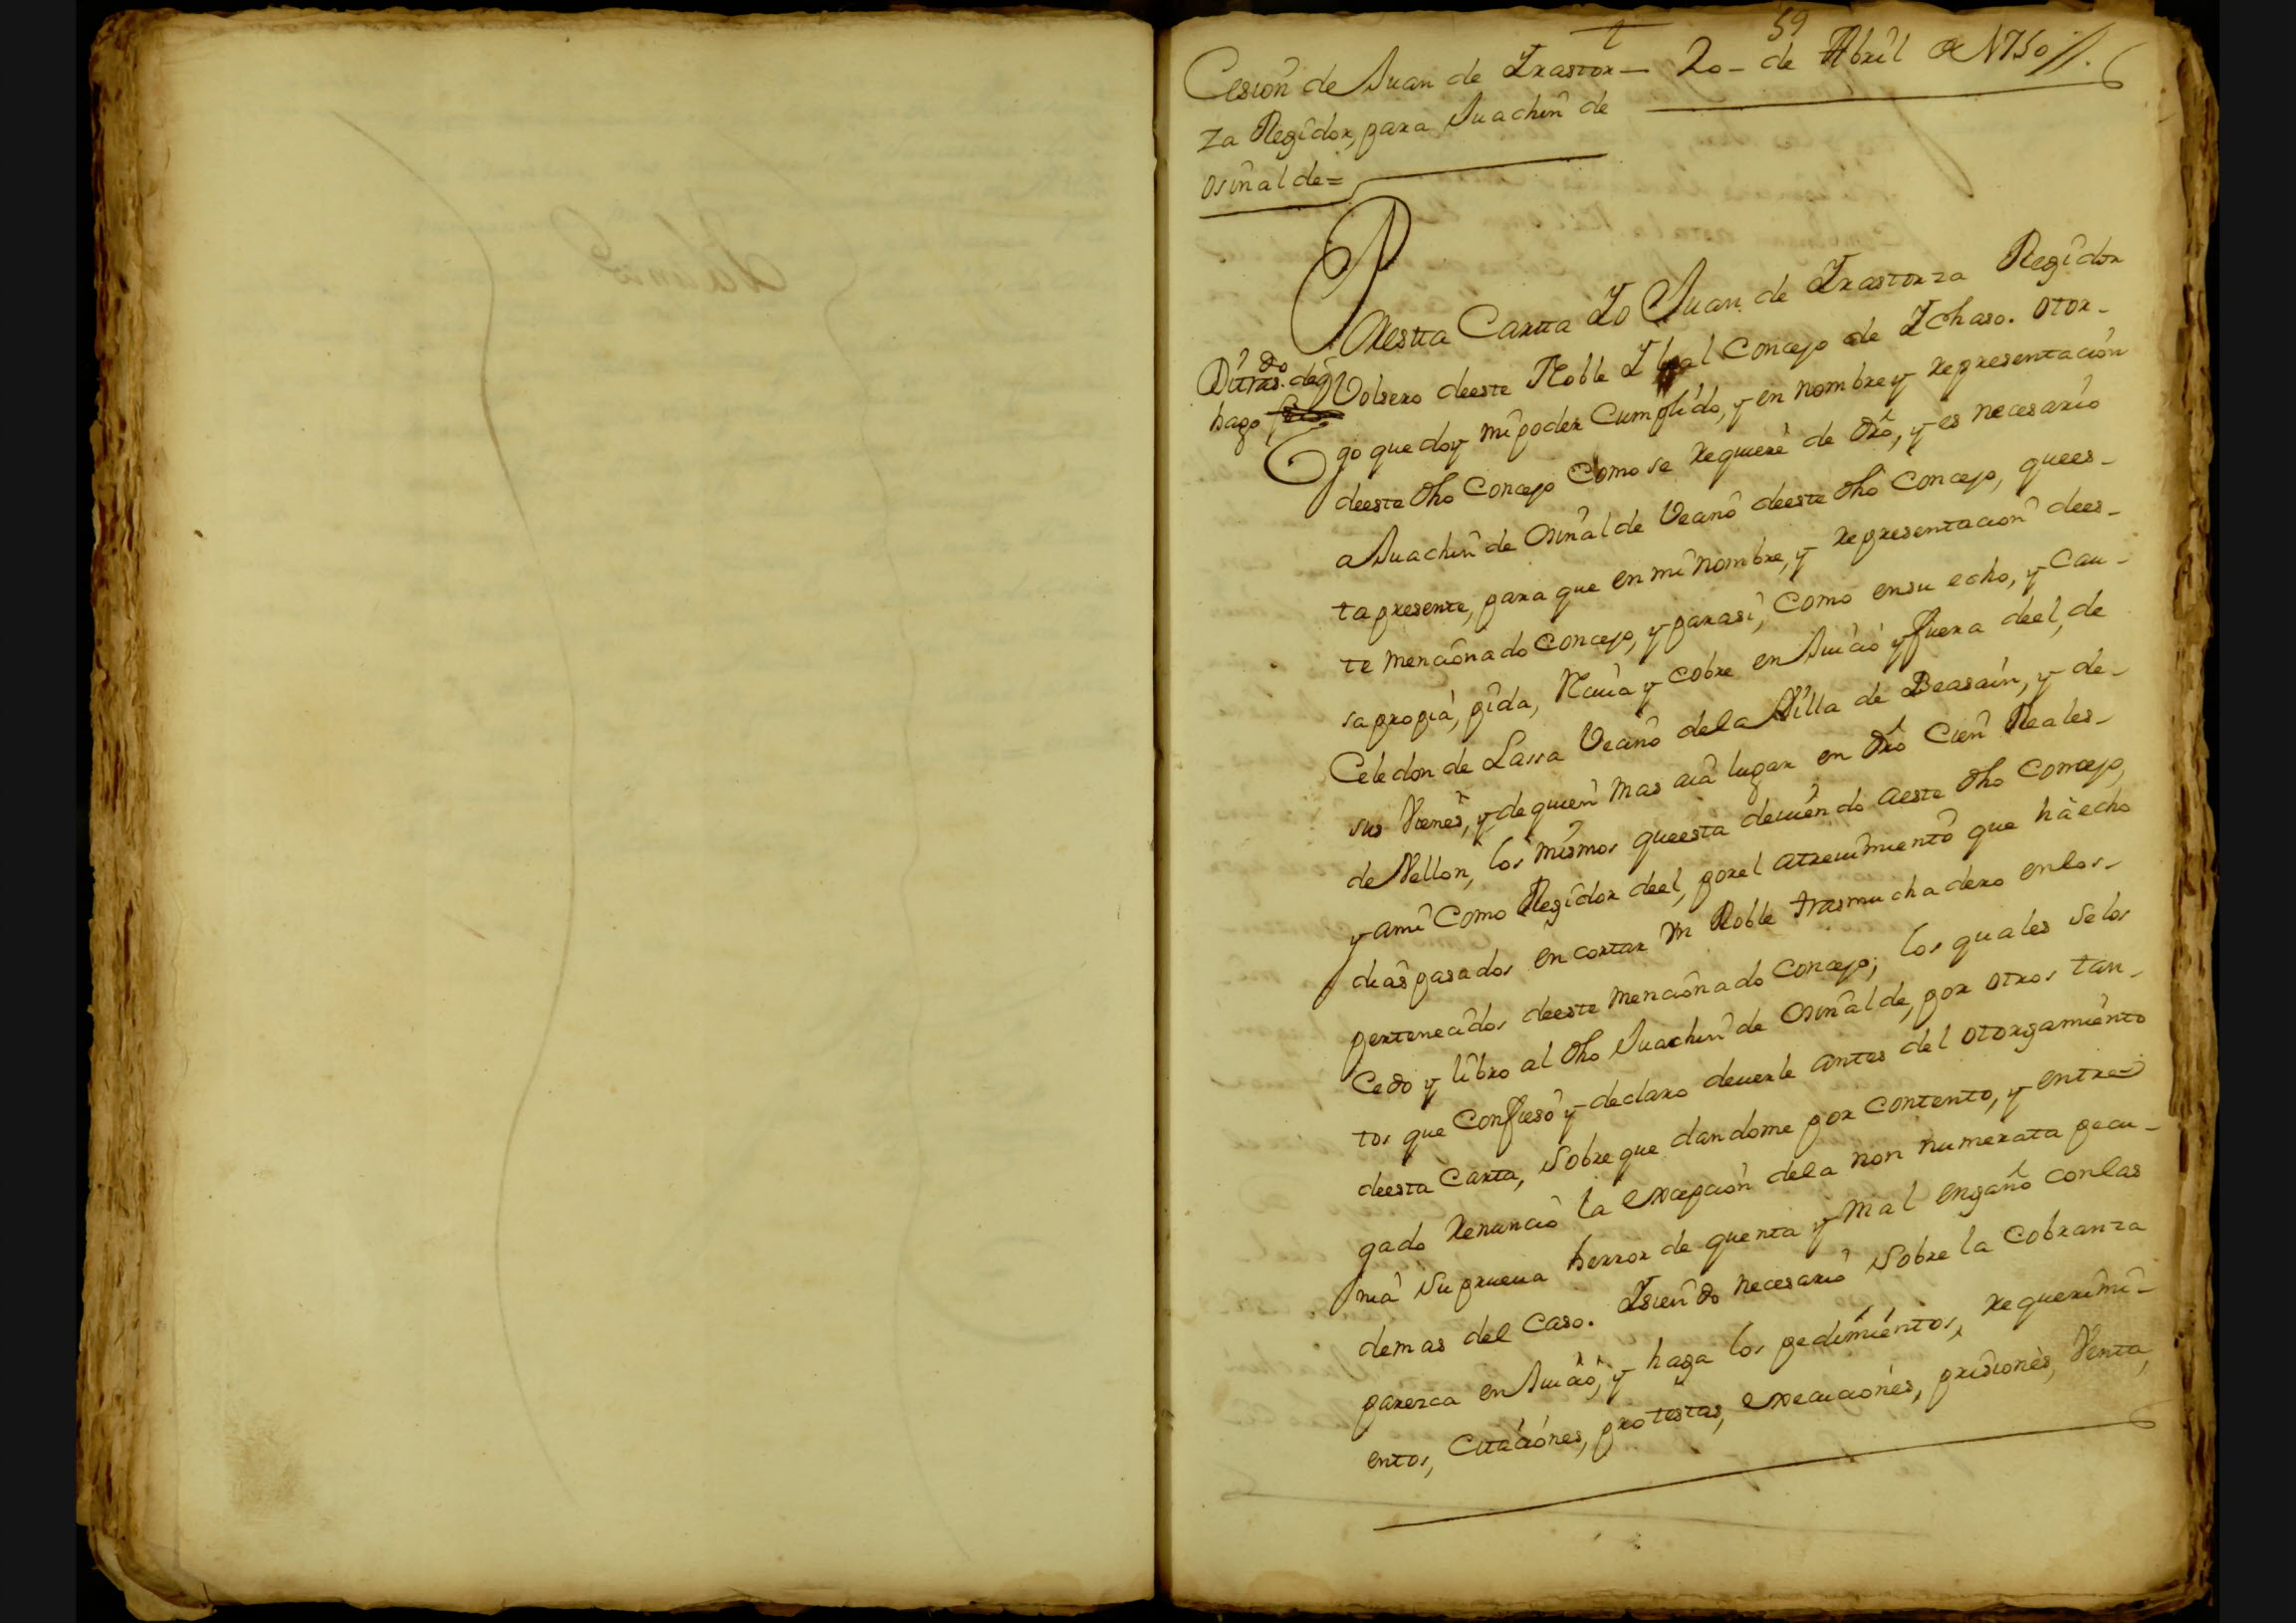 59
Cesion de Juan de Yrastor- 20- de Abril de 1750//.
za Regidor, para Juachin de
Osinalde=
Presta Cartta Yo Juan de Yrastorza Regidor
Volsero deeste Noble Y leal Concejo de Ychaso. Otor-
go que doy mi poder Cumplido, y en nombre y representacion
deeste dho Concejo Como se requiere de dro, y es necesario
a Juachin de Osinalde Vecino deeste dho Concejo, quees-
ta presente, para que en mi nombre, y representacion dees-
te mencionado Concejo, y para si, Como en su echo, y Cau-
sa propia, pida, Reciua y Cobre en Juicio y fuera deel, de
Celedon de Lassa Vecino dela Villa de Beasain, y de-
sus Vienes, y de quien mas aia lugar en dro Cien Reales-
de Vellon, los mismos queesta deuiendo aeste dho Concejo,
y ami Como Regidor deel, porel atreuimiento que hà echo
dias pasados en cortar Vn Roble trasmuchadero enlos-
pertenecidos deeste mencionado Concejo; los quales Selos
Cedo y libro al dho Juachin de Osinalde, por otros tan-
tos que Confieso y declaro deuerle antes del otorgamiento
deesta Carta, Sobre que dandome por Contento, y entre-
gado renuncio la excepcion dela non numerata pecu-
nia Su prueua herror de quenta y mal engaño conlas
demas del Caso. Ysiendo necesario Sobre la Cobranza
parezca en Juicio, y haga los pedimientos, requerimi-
entos, Citaciones, protestas, execuciones, prisiones, Venta,